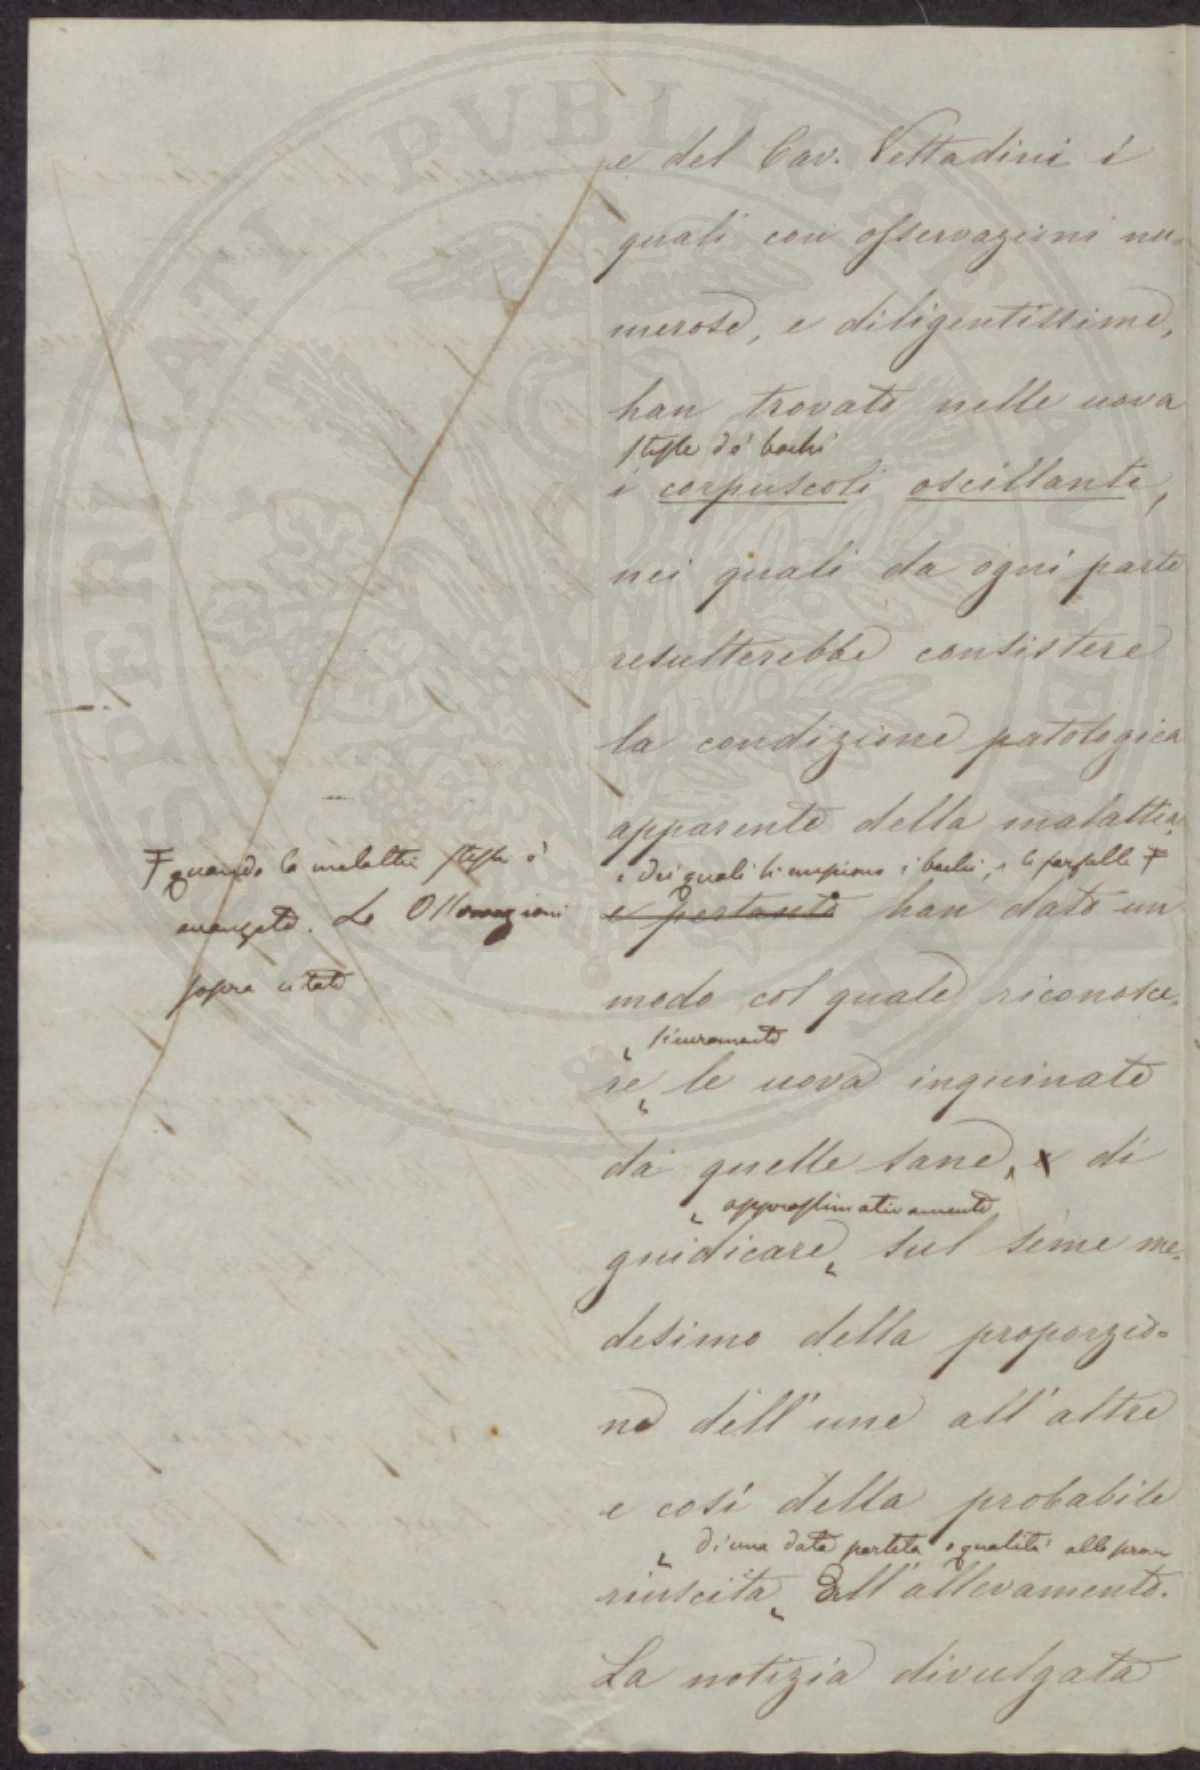 e del Cav. Vittadini i
quali con osservazioni nu-
merose, e diligentissime,
han trovato nelle uova
stesse de' bachi
i corpuscoli oscillanti,
nei quali da ogni parte
resulterebbe consistere
la condizione patologica
apparente della malattia,
e dei quali si empiono i bachi, e le farfalle Ŧ
e pertanto han dato un
modo col quale riconosce-
sicuramente
re le uova inquinate
da quelle sane, e di
approssimativamente
guidicare sul seme me-
desimo della proporzio-
ne dell'une all'altre
e così della probabile
di una data partita o qualità alla prova
riuscita dell'allevamento.
La notizia divulgata
Ŧ quando la malattia stessa è
avanzata. Le Osservazioni
sopra citate
PROSPERITATI PVBLICAE AVGENDAE